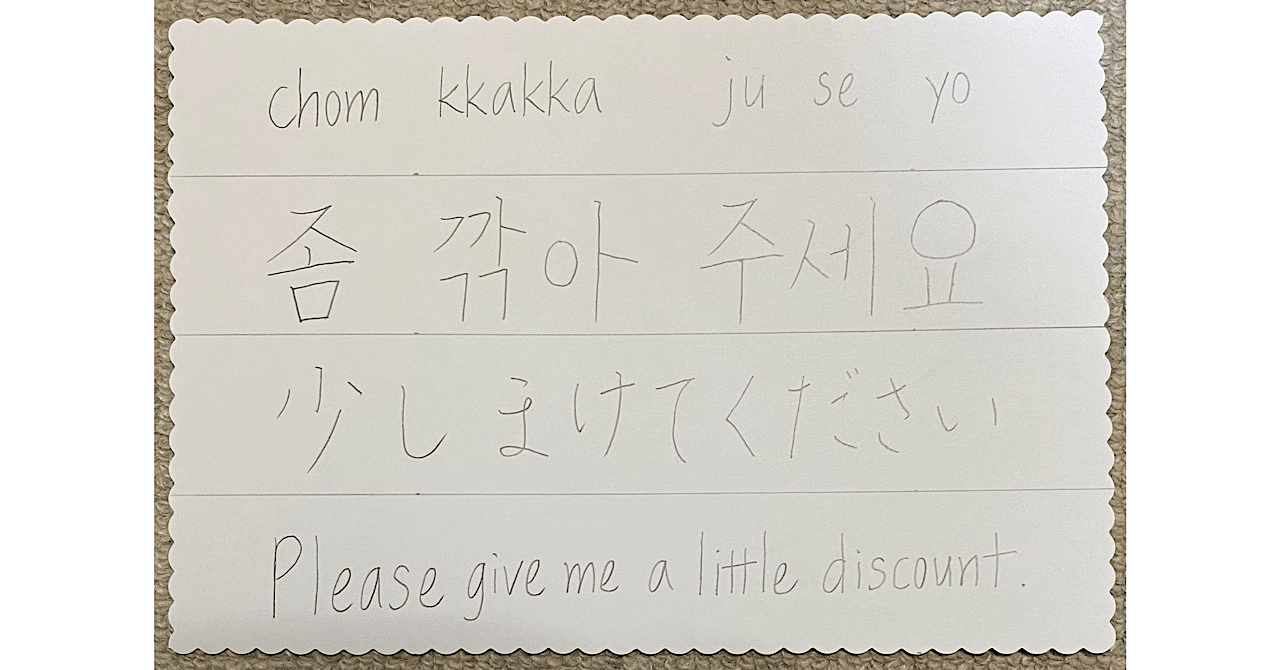 chom kkakka ju se yo
좀 깎아 주세요
少しまけてください
Please give me a little discount.